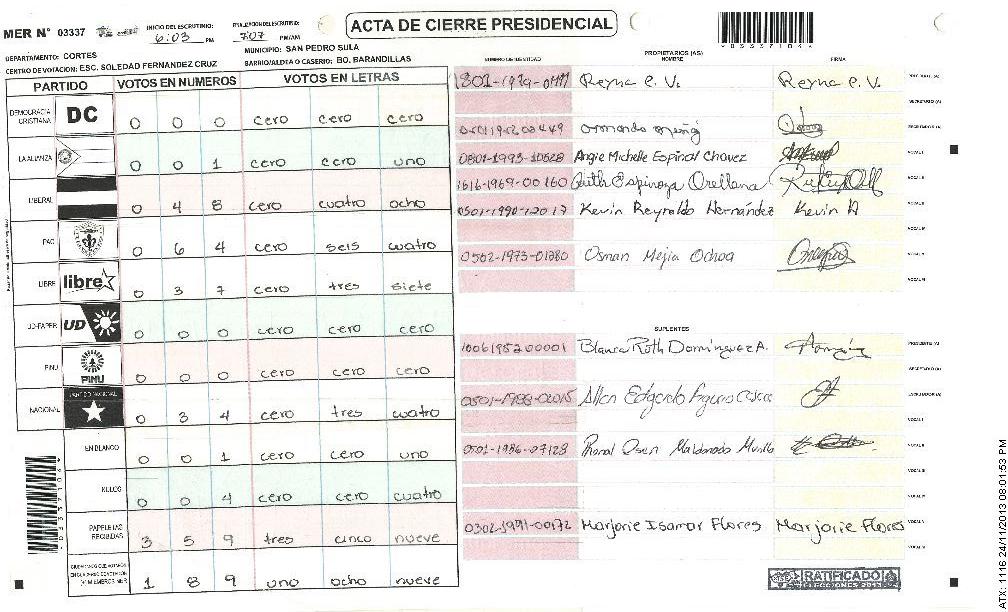 ACTA DE CIERRE PRESIDENCIAL
MER N° 03337
INICIO DEL ESCRUTINIO: 6:03 PM
FINALIZACION DEL ESCRUTINIO: 7:07 PM/AM
DEPARTAMENTO: CORTES
MUNICIPIO: SAN PEDRO SULA
CENTRO DE VOTACION: ESC. SOLEDAD FERNANDEZ CRUZ
BARRIO/ALDEA O CASERIO: BO. BARANDILLAS
PARTIDO VOTOS EN NUMEROS VOTOS EN LETRAS
DEMOCRACIA CRISTIANA DC 0 0 0 cero cero cero
LA ALIANZA 0 0 1 cero cero uno
LIBERAL 0 4 8 cero cuatro ocho
PAC 0 6 4 cero seis cuatro
LIBRE libre 0 3 7 cero tres siete
UD-FAPER UD 0 0 0 cero cero cero
PINU PINU 0 0 0 cero cero cero
NACIONAL PARTIDO NACIONAL 0 3 4 cero tres cuatro
EN BLANCO 0 0 1 cero cero uno
NULOS 0 0 4 cero cero cuatro
PAPELETAS RECIBIDAS 3 5 9 tres cinco nueve
1 8 9 uno ocho nueve
PROPIETARIOS (AS)
NUMERO DE IDENTIDAD NOMBRE FIRMA
Reyna C. V. Reyna C. V.
SECRETARIO (A)
Armando
0801-1993-10628 Angie Michelle Espinal Chavez VOCAL I
1616-1969-00160 Ruth Espinoza Orellana VOCAL II
0501-1990-12017 Kevin Reynaldo Hernández Kevin H
VOCAL III
0502-1973-01380 Osman Mejia Ochoa
SUPLENTES
1006198200001 Blanca Roth Domínguez A. PRESIDENTE (A)
SECRETARIO (A)
Allan Edgardo ESCRUTADOR (A)
VOCAL I
0501-1986-07128 Ronal Osen Maldonado Murillo VOCAL II
VOCAL III
0302-1991-00172 Marjorie Isamar Flores Marjorie Flores
RATIFICADO
ELECCIONES 2013
ATX: 1116 24/11/2013 08:01:53 PM